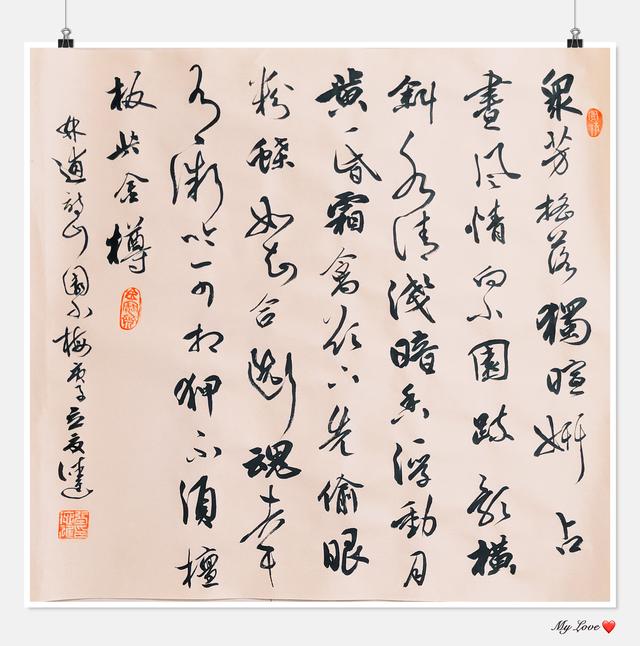 眾芳搖落獨暄妍占
盡風情向小園疎影橫
斜水清淺暗香浮動月
黃昏霜禽欲下先偷眼
粉蝶如知合斷魂幸
有微吟可相狎不須檀
板共金樽
林逋詩山園小梅庚子立夏
My Love ❤️